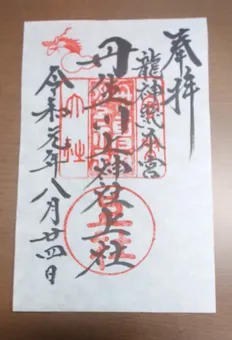 奉拝
龍神総本宮
丹生川上神社上社
令和元年八月廿四日